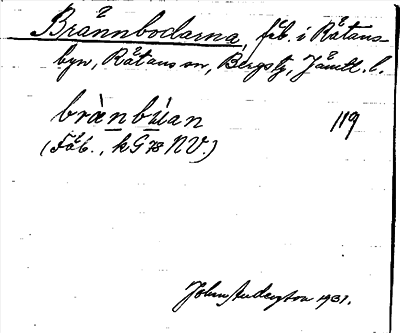 Brännbodarna, fäb. i Rätans-
byn, Rätans sn, Bergs tg, Jämtl. l.
brànbúan 119
(Fäb., kG 78 NV.)
John Anderston 1931.